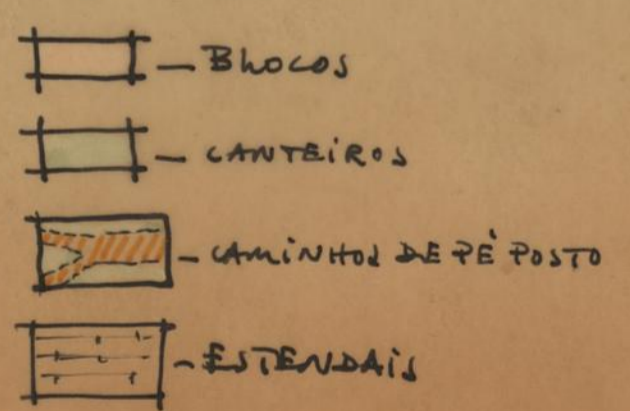 — BLOCOS
— CANTEIROS
— CAMINHOS DE PÉ POSTO
— ESTENDAIS